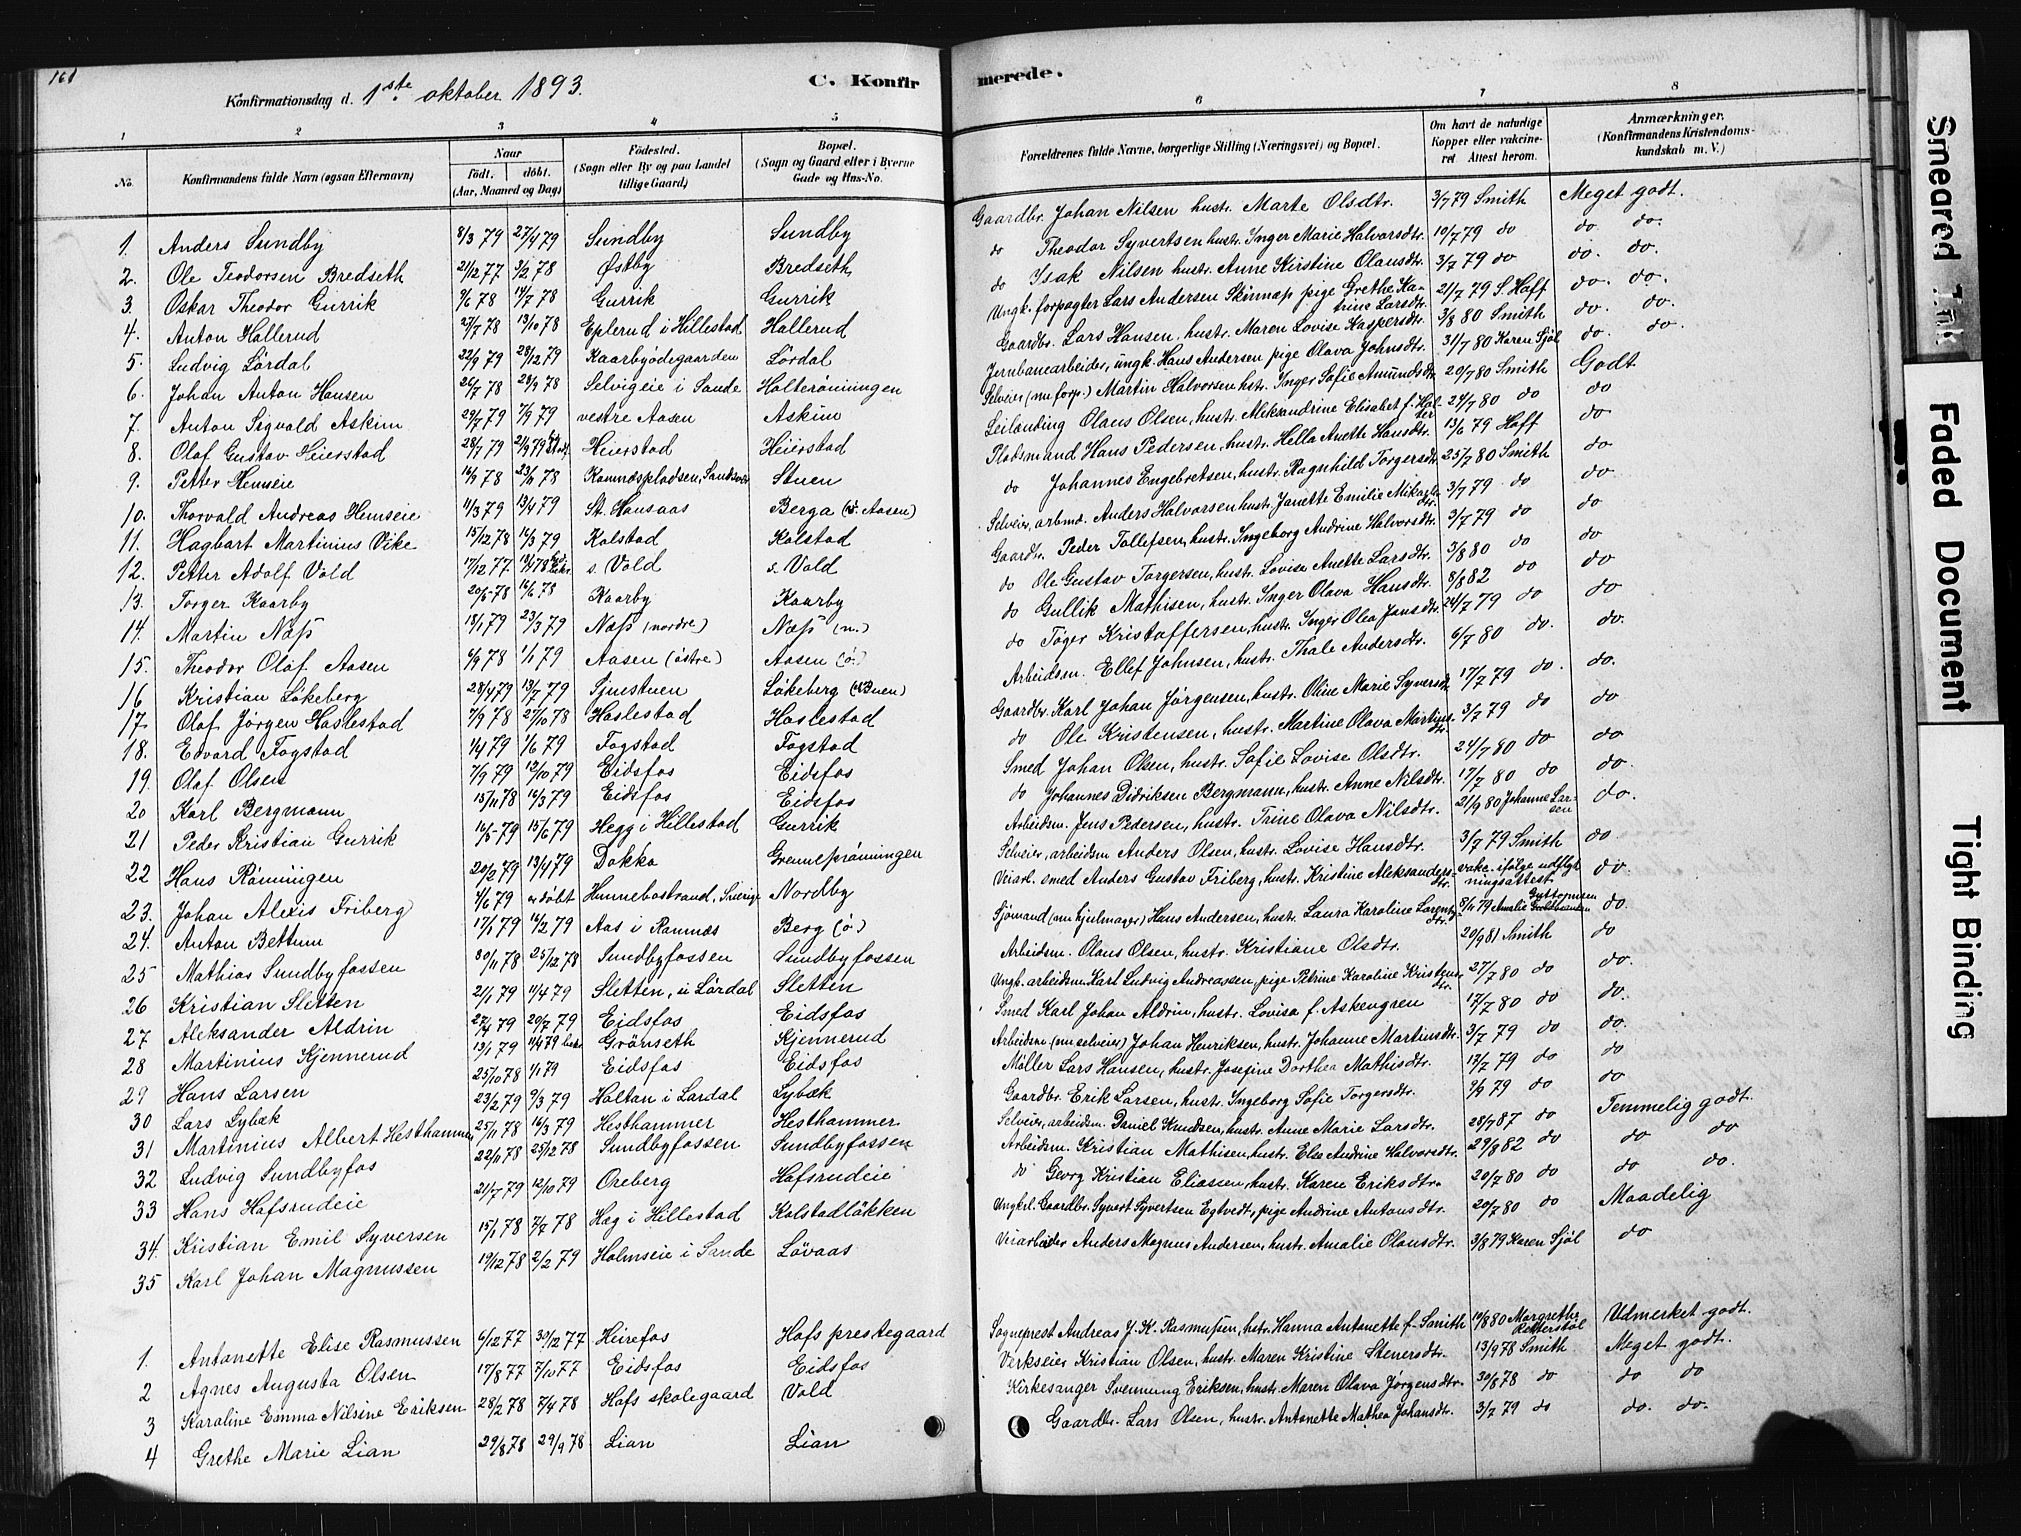 161
C. Konfirmerede.
Konfirmationsdag d. 1ste oktober 1893.
1 2 3 4 5 6 7 8
No. Konfirmandens fulde Navn (ogsaa Efternavn) Naar födt. döbt. (Aar, Maaned og Dag) Födested. (Sogn eller By og paa Landet tillige Gaard) Bopæl. (Sogn og Gaard eller i Byerne Gade og Hus-No. Forældrenes fulde Navne, borgerlige Stilling (Næringsvei) og Bopæl. Om havt de naturlige Kopper eller vakcineret Attest herom. Anmærkninger. (Konfirmandens Kristendomskundskab m. V.)
1. Anders Sundby 8/3 79 27/4 79 Sundby Sundby Gaardbr. Johan Nilsen hustr. Marte Olsdtr. 3/7 79 Smith Meget godt.
2. Ole Teodorsen Bredseth 21/12 77 3/2 78 Østby Bredseth do Theodor Syvertsen hustr. Inger Marie Halvorsdtr. 10/7 79 do do. do.
3. Oskar Theodor Gurrik 9/6 78 14/7 78 Gurrik Gurrik do Isak Nilsen hustr. Anne Kirstine Olausdtr. 3/7 79 do do. do.
4. Anton Hallerud 27/7 78 13/10 78 Eplerud i Hillestad Hallerud Ungk. forpagter Lars Andersen Skinnap pige Grethe Katrine Larsdtr. 21/7 79 S. Hoff do. do.
5. Ludvig Lördal 22/9 79 28/12 79 Kaarbyödegaarden Lördal Gaardbr. Lars Hansen, hustr. Maren Lovise Kaspersdtr. 3/8 80 Smith do. do.
6. Johan Anton Hansen 26/7 78 28/9 78 Selvigeie i Sande Holterönningen Jernbanearbeider, ungk. Hans Andersen pige Olava Johnsdtr. 31/7 80 Karen Sjöl do do.
7. Anton Sigvald Askim 29/7 79 7/9 79 vestre Aasen Askim Selveier (nu forp.) Martin Halvorsen hstr. Inger Sofie Amundsdtr. 20/7 80 Smith Godt
8. Olaf Gustav Heierstad 28/7 79 21/9 79 Heierstad Heierstad Leilanding Olaus Olsen, hustr. Aleksandrine Elisabet f. Holter 24/7 80 do do
9. Petter Hemseie 16/9 78 23/11 78 Komnæspladsen, Sandsvær Stuen Pladsmand Hans Pedersen, hustr. Hella Anette Hansdtr. 13/6 79 Hoff do
10. Thorvald Andreas Hemseie 11/3 79 13/4 79 St. Hansaas Berga (v. Aasen) do Johannes Engebretsen, hustr. Ragnhild Torgersdtr. 25/7 80 Smith do
11. Hagbart Martinius Vike 15/12 78 16/3 79 Kolstad Kolstad Selveier, arbmd. Anders Halvorsen hustr. Janette Emilie Mikaelsdtr. 3/7 79 do do.
12. Petter Adolf Vold 17/12 77 s. Vold s. Vold Gaardbr. Peder Tollefsen, hustr. Ingeborg Andrine Halvorsdtr. 3/7 79 do do
13. Torger Kaarby 20/5 78 16/6 78 Kaarby Kaarby do Ole Gustav Torgersen, hustr. Lovise Anette Larsdtr. 3/8 80 do do
14. Martin Næss 18/1 79 23/3 79 Næss (nordre) Næss (n.) do Gullik Mathisen, hustr. Inger Olava Hansdtr. 8/8 82 do do
15. Theodor Olaf Aasen 6/9 78 1/1 79 Aasen (östre) Aasen (ö.) do Töger Kristoffersen, hustr. Inger Olea Jansdtr. 24/7 79 do do
16 Kristian Lökeberg 28/4 79 13/7 79 Sjuestuen Lökeberg Arbeidsm. Ellef Johnsen, hustr. Thale Andersdtr. 6/7 80 do. do.
17. Olaf Jörgen Haslestad 7/9 78 27/10 78 Haslestad Haslestad Gaardbr. Karl Johan Jörgensen, hustr. Oline Marie Syversdtr. 17/7 79 do. do.
18. Edvard Fogstad 1/4 79 1/6 79 Fogstad Fogstad do Ole Kristensen, hustr. Martine Olava Martinsdtr. 3/7 79 do do
19. Olaf Olsen 7/9 79 12/10 79 Eidsfos Eidsfos Smed Johan Olsen, hustr. Sofie Lovise Olsdtr. 24/7 80 do do
20 Karl Bergmann 15/11 78 16/3 79 Eidsfos Eidsfos do Johannes Didriksen Bergmann, hustr. Anne Nilsdtr. 17/7 80 do do.
21 Peder Kristian Gurrik 16/5 79 15/6 79 Hegg i Hillestad Gurrik Arbeidsm. Jens Pedersen, hustr. Trine Olava Nilsdtr. 21/9 80 Johanne Larsen do.
22 Hans Rönningen 20/2 79 13/4 79 Dokka Grennesrönningen Selveier, arbeidsm Anders Olsen, hustr. Lovise Hansdtr. 3/7 79 Smith do
23. Johan Alexis Friberg 4/6 79 er döbt Hunnebostrand, Sverige Nordby Veiarb. smed Anders Gustav Friberg, hustr. Kristine Aleksandersdtr. vakc. ifölge udflytningsattest. do.
24. Anton Bettum 17/1 79 16/2 79 Aas i Ramnæs Berg (ö.) Sjömand (nu hjulmager) Hans Andersen, hustr. Laura Karoline Larentsdtr. 8/11 79 Amalie Guttormsen do.
25 Mathias Sundbyfossen 30/11 78 25/12 78 Sundbyfossen Sundbyfossen Arbeidsm. Olaus Olsen, hustr. Kristiane Olsdtr. 20/9 81 Smith do
26 Kristian Sletten 21/1 79 11/4 79 Sletten, u Lördal Sletten Ungk. arbeidsm. Karl Ludvig Andreassen, pige Petrine Karoline Kristensdtr. 27/7 80 do do.
27 Aleksander Aldrin 27/4 79 20/7 79 Eidsfos Eidsfos Smed Karl Johan Aldrin, hustr. Lovisa f. Askengren 17/7 80 do do.
28 Martinius Kjennerud 13/1 79 11/4 79 Grönseth Kjennerud Arbeidsm (nu selveier) Johan Henriksen, hustr. Johanne Martinsdtr. 3/7 79 do do
29 Hans Larsen 25/10 78 1/1 79 Eidsfos Eidsfos Möller Lars Hansen, hustr. Josefine Dorthea Mathisdtr. 13/7 79 do do
30 Lars Lybæk 23/2 79 9/3 79 Holtan i Lardal Lybæk Gaardbr. Erik Larsen, hustr. Ingeborg Sofie Torgersdtr. 9/9 79 do do
31 Martinius Albert Hesthammer 25/11 78 16/3 79 Hesthammer Hesthammer Selveier, arbeidsm. Daniel Knudsen, hustr. Anne Marie Larsdtr. 28/7 87 do Temmelig godt.
32 Ludvig Sundbyfos 22/11 78 25/12 78 Sundbyfossen Sundbyfossen Arbeidsm. Kristian Mathisen, hustr. Else Andrine Halvorsdtr. 29/8 82 do do do
33 Hans Hafsrudeie 21/7 79 12/10 79 Oreberg Hafsrudeie do Georg Kristian Eliassen, hustr. Karen Eriksdtr. 20/7 80 do do do.
34. Kristian Emil Syversen 15/1 78 7/7 78 Hæg i Hillestad Kolstadlökken Ungkrl. Gaardbr. Syvert Syvertsen Egtvedt, pige Andrine Antonsdtr. 20/7 80 do Maadelig
35 Karl Johan Magnussen 19/12 78 2/2 79 Holmseie i Sande Lövaas Veiarbeider Anders Magnus Andersen, hustr. Amalie Olausdtr. 3/8 79 Karen Sjöl do
1. Antonette Elise Rasmussen 6/12 77 30/12 77 Heirefos Hofs prestegaard Sogneprest Andreas J. K. Rasmussen, hstr. Hanna Antonette f. Smith 19/8 80 Margrethe Udmerket godt.
2 Agnes Augusta Olsen 17/8 77 7/10 77 Eidsfos Eidsfos Verkseier Kristian Olsen, hustr. Maren Kristine Stenersdtr. 13/9 78 Smith Meget godt.
3 Karoline Emma Nilsine Eriksen 28/2 78 7/4 78 Hofs skolegaard Vold Kirkesanger Svennung Eriksen, hustr. Maren Olava Jörgensdtr. 30/8 78 do do do
4 Grethe Marie Lian 29/8 78 29/9 78 Lian Lian Gaardbr. Lars Olsen, hustr. Antonette Mathea Johansdtr. 3/7 79 do do. do.
Smeared Ink
Faded Document
Tight Binding